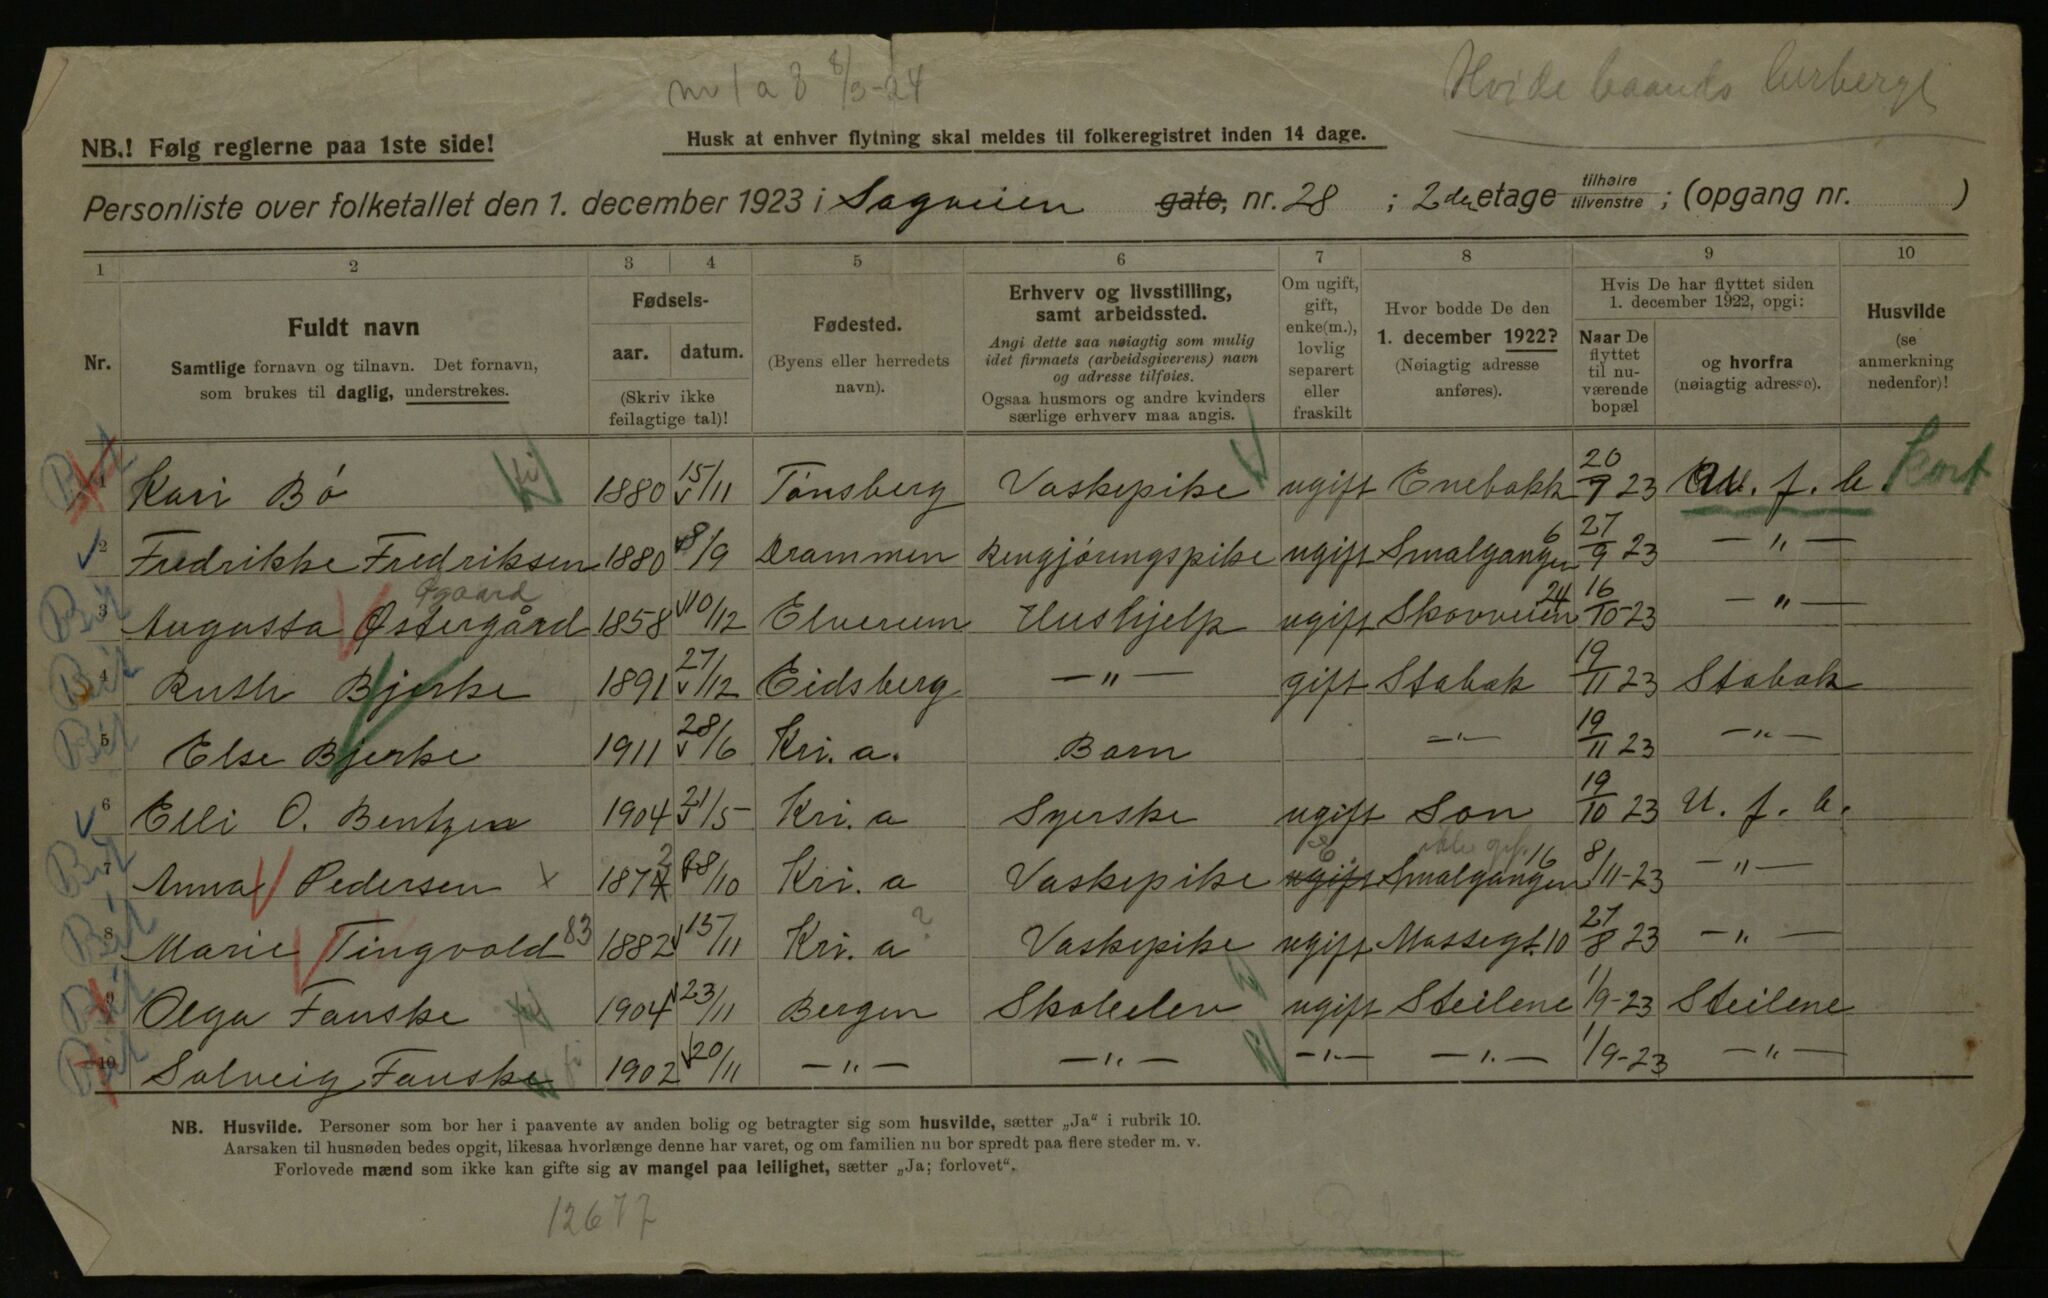 nr 1 a 8 8/3-24
Hvide baands herberge
NB.! Følg reglerne paa 1ste side!
Husk at enhver flytning skal meldes til folkeregistret inden 14 dage.
Personliste over folketallet den 1. december 1923 i Sagveien gate, nr. 28 ; 2den etage tilhøire tilvenstre ; (opgang nr. )
1 2 3 4 5 6 7 8 9 10
Nr.
Fuldt navn
Samtlige fornavn og tilnavn. Det fornavn,
som brukes til daglig, understrekes.
Fødsels-
aar. datum.
(Skriv ikke
feilagtige tal)!
Fødested.
(Byens eller herredets
navn).
Erhverv og livsstilling,
samt arbeidssted.
Angi dette saa nøiagtig som mulig
idet firmaets (arbeidsgiverens) navn
og adresse tilføies.
Ogsaa husmors og andre kvinders
særlige erhverv maa angis.
Om ugift,
gift,
enke(m.),
lovlig
separert
eller
fraskilt
Hvor bodde De den
1. december 1922?
(Nøiagtig adresse
anføres).
Hvis De har flyttet siden
1. december 1922, opgi:
Naar De
flyttet
til nu-
værende
bopæl
og hvorfra
(nøiagtig adresse).
Husvilde
(se
anmerkning
nedenfor)!
1 Kari Bó 1880 15/11 Tónsberg Vaskepike ugift Enebakk 20/9 23 U. f. b. Kort
2 Fredrikke Fredriksen 1880 8/9 Drammen Rengjóringspike ugift Smalgangen 6 27/9 23 — " —
Øgaard
3 Augusta Østergård 1858 10/12 Elverum Hushjelp ugift Skovveien 24 16/10-23 — " —
4 Ruth Bjerke 1891 27/12 Eidsberg — " — gift Stabak 19/11 23 Stabak
5 Else Bjerke 1911 28/6 Kri. a. Barn — " — 19/11 23 — " —
6 Elli O. Bentzen 1904 21/5 Kri. a Syerske ugift Son 19/10 23 U. f. b.
7 Anna Pedersen x 1872 8/10 Kri. a Vaskepike ugift e Smalgangen 16 8/11-23 — " —
8 Marie Tingvold 83 1882 15/11 Kri. a ? Vaskepike ugift Massegt. 10 27/8 23 — " —
9 Olga Fanske 1904 23/11 Bergen Skoleelev ugift Steilene 1/9-23 Steilene
10 Solveig Fanske 1902 20/11 — " — — " — — " — — " — 1/9-23 — " —
NB. Husvilde. Personer som bor her i paavente av anden bolig og betragter sig som husvilde, sætter „Ja“ i rubrik 10.
Aarsaken til husnøden bedes opgit, likesaa hvorlænge denne har varet, og om familien nu bor spredt paa flere steder m. v.
Forlovede mænd som ikke kan gifte sig av mangel paa leilighet, sætter „Ja; forlovet“.
12677